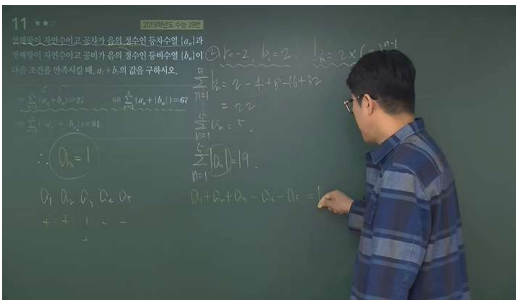 11 ★★☆
2019학년도 수능 29번
첫째항이 자연수이고 공차가 음의 정수인 등차수열 {aₙ}과
첫째항이 자연수이고 공비가 음의 정수인 등비수열 {bₙ}이
다음 조건을 만족시킬 때, a₇+b₇의 값을 구하시오.
(aₙ+bₙ)=27
(aₙ+|bₙ|)=67
(|aₙ|+|bₙ|)=81
∴ a₃=1
a₁ a₂ a₃ a₄ a₅
+ + + - -
② r=-2, b₁=2
= 2-4+8-16+32
= 22
= 5.
|aₙ|=19.
a₁+a₂+a₃-a₄-a₅ = 1